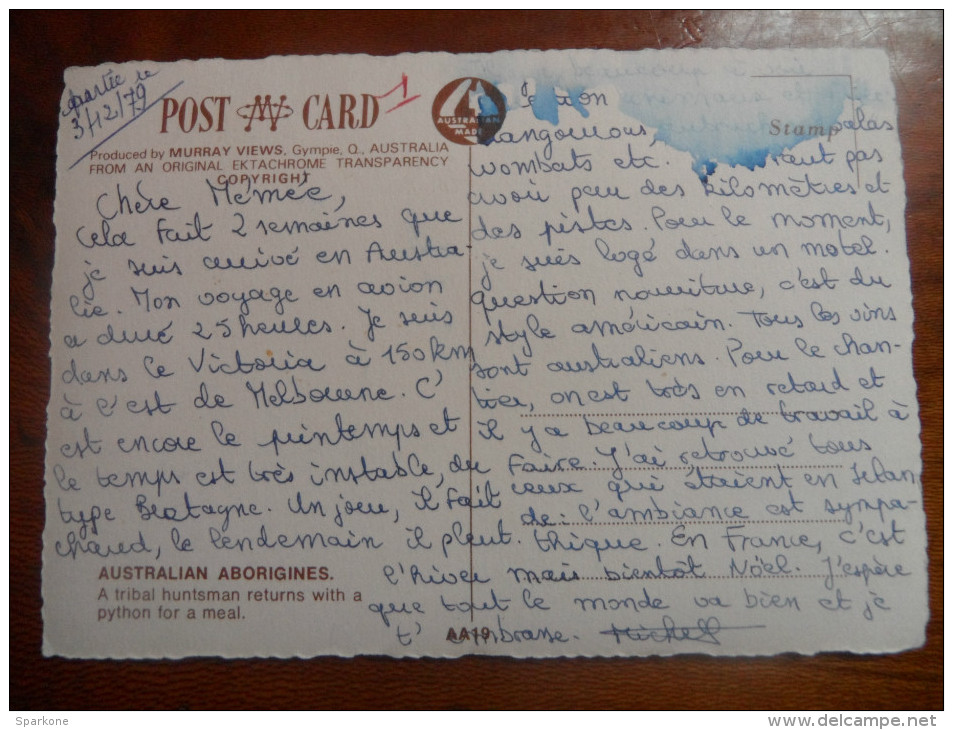 partie le
3/12/79
POST CARD
1
AUSTRALIAN
MADE
Stamp
Produced by MURRAY VIEWS, Gympie, Q., AUSTRALIA
FROM AN ORIGINAL EKTACHROME TRANSPARENCY
COPYRIGHT
Chère Mémée,
Cela fait 2 semaines que
je suis arrivé en Austra-
lie. Mon voyage en avion
a duré 25 heures. Je suis
dans le Victoria à 150 km
à l'est de Melbourne. C'
est encore le printemps et
le temps est très instable, du
type Bretagne. Un jour, il fait
chaud, le lendemain il pleut.
kangourous, koalas
wombats etc. faut pas
avoir peur des kilomètres et
des pistes. Pour le moment,
je suis logé dans un motel.
question nourriture, c'est du
style américain. Tous les vins
sont australiens. Pour le chan-
tier, on est très en retard et
il y a beaucoup de travail à
faire. J'ai retrouvé tous
ceux qui étaient en Islan
de: l'ambiance est sympa-
thique. En France, c'est
l'hiver mais bientôt Nöel. J'espère
que tout le monde va bien et je
t'embrasse. Michell
AUSTRALIAN ABORIGINES.
A tribal huntsman returns with a
python for a meal.
AA19
Sparkone
www.delcampe.net